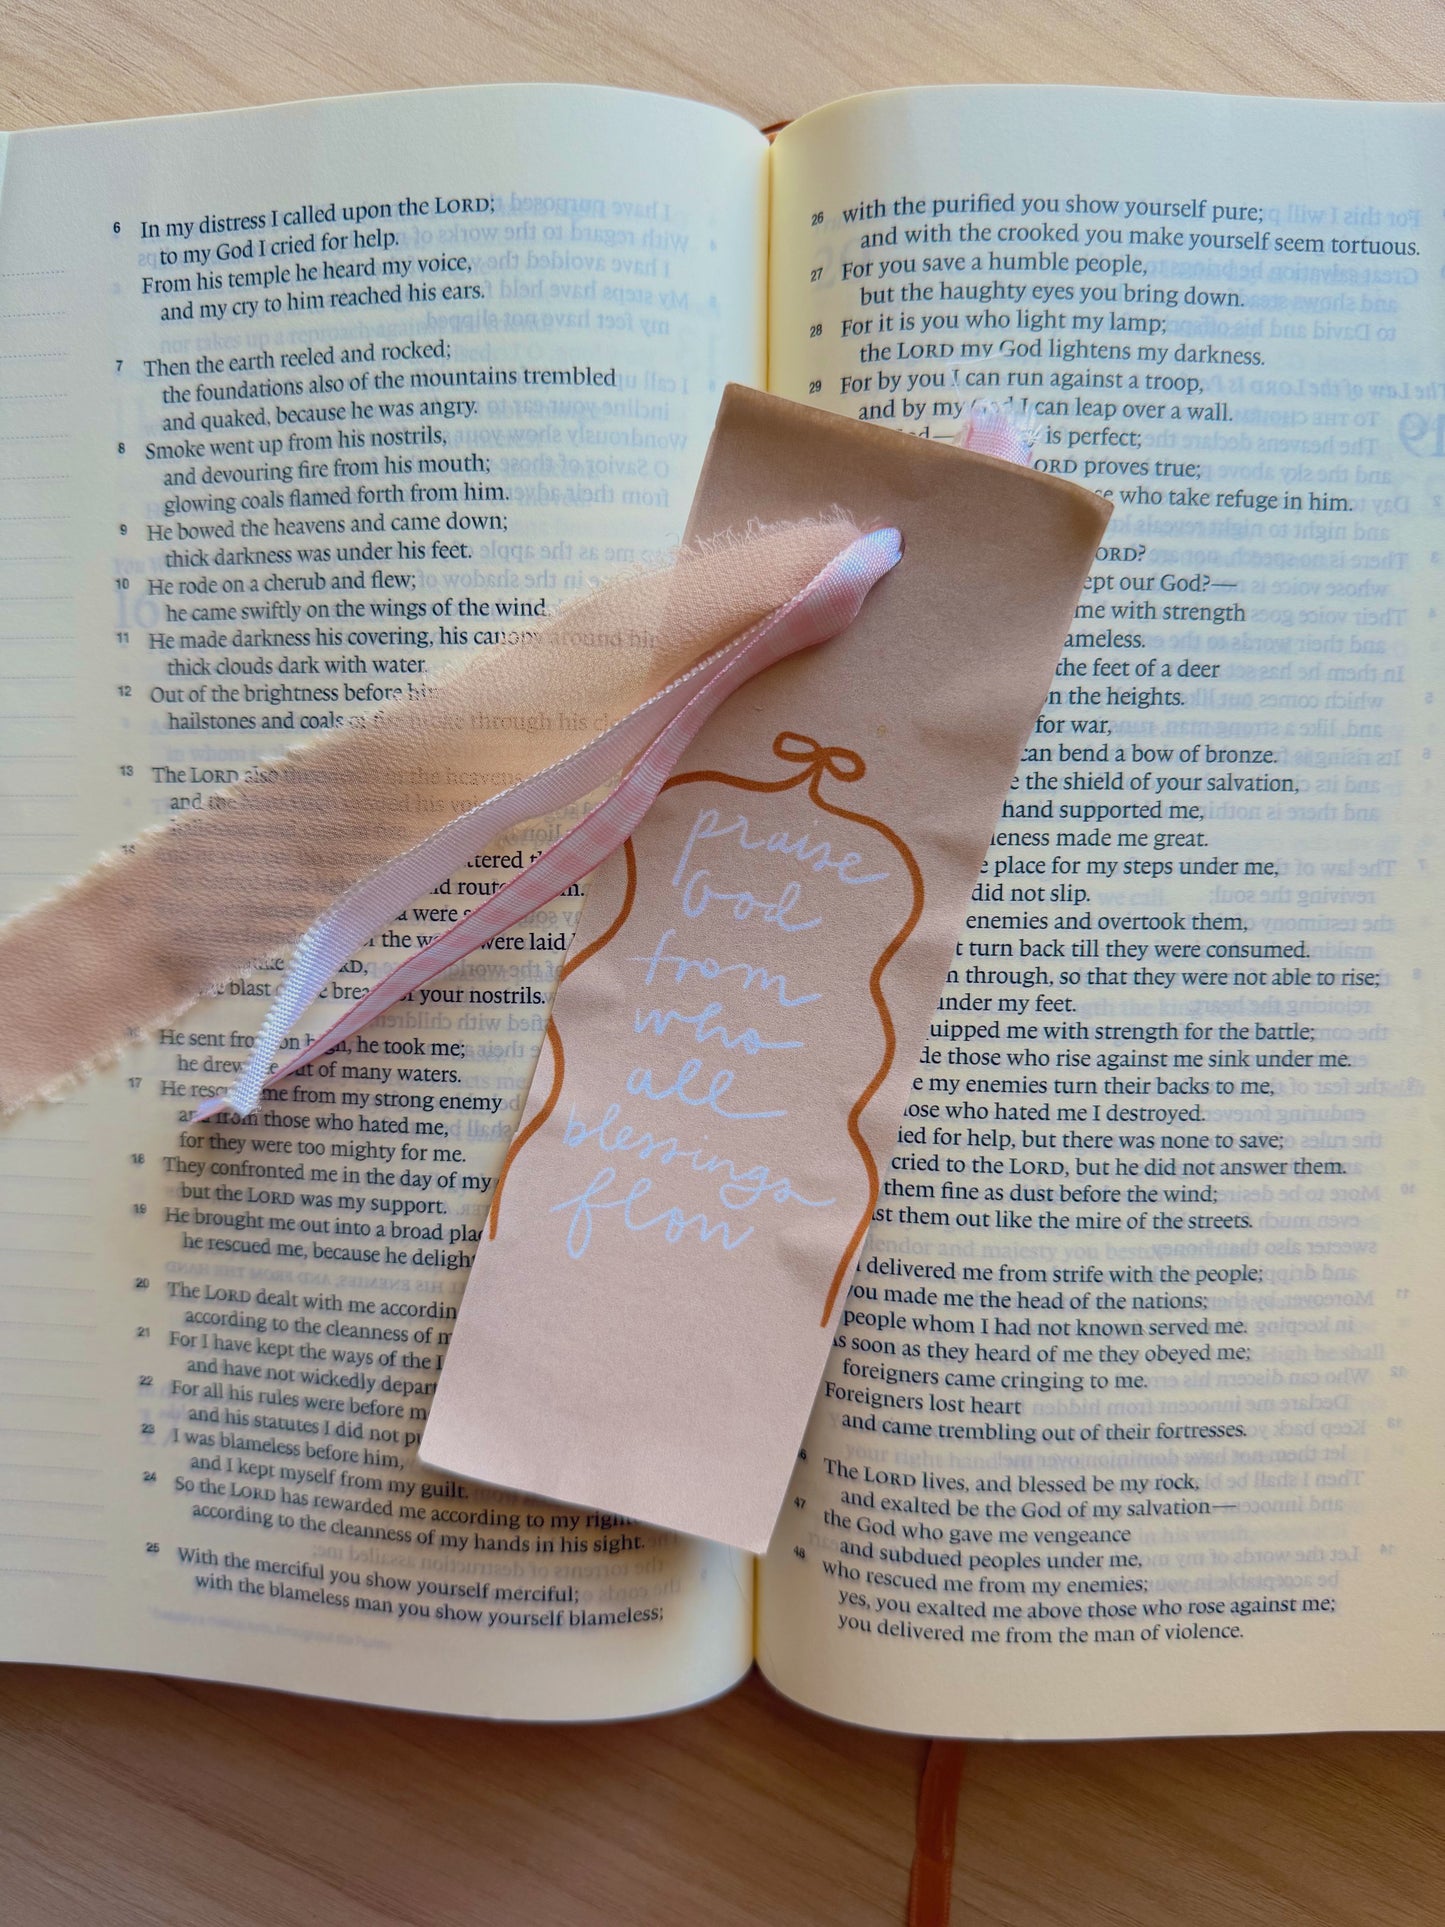 6 In my distress I called upon the LORD;
to my God I cried for help.
From his temple he heard my voice,
and my cry to him reached his ears.
7 Then the earth reeled and rocked;
the foundations also of the mountains trembled
and quaked, because he was angry.
8 Smoke went up from his nostrils,
and devouring fire from his mouth;
glowing coals flamed forth from him.
9 He bowed the heavens and came down;
thick darkness was under his feet.
10 He rode on a cherub and flew;
he came swiftly on the wings of the wind.
11 He made darkness his covering, his canopy around him
thick clouds dark with water.
12 Out of the brightness before him
hailstones and coals of fire broke through his
13 The LORD also thundered in the heavens
and the
14
the
and
were
the were laid
LORD,
blast your nostrils.
16 He sent from on high, he took me;
he drew me out of many waters.
17 He rescued me from my strong enemy
and from those who hated me,
for they were too mighty for me.
18 They confronted me in the day of my
but the LORD was my support.
19 He brought me out into a broad
he rescued me, because he
20 The LORD dealt with me
according to the cleanness of
21 For I have kept the ways of the
and have not wickedly
22 For all his rules were before
and his statutes I did not
23 I was blameless before him,
and I kept myself from my guilt.
24 So the LORD has rewarded me according to my
according to the cleanness of my hands in his sight.
25 With the merciful you show yourself merciful;
with the blameless man you show yourself blameless;
praise
God
from
who
all
blessings
flow
26 with the purified you show yourself pure;
and with the crooked you make yourself seem tortuous.
27 For you save a humble people,
but the haughty eyes you bring down.
28 For it is you who light my lamp;
the LORD my God lightens my darkness.
29 For by you I can run against a troop,
and by my God I can leap over a wall.
is perfect;
LORD proves true;
who take refuge in him.
LORD?
our God?—
me with strength
the feet of a deer
on the heights.
for war,
can bend a bow of bronze.
the shield of your salvation,
hand supported me,
made me great.
place for my steps under me,
did not slip.
enemies and overtook them,
turn back till they were consumed.
through, so that they were not able to rise;
under my feet.
me with strength for the battle;
those who rise against me sink under me.
my enemies turn their backs to me,
those who hated me I destroyed.
for help, but there was none to save;
cried to the LORD, but he did not answer them.
them fine as dust before the wind;
them out like the mire of the streets.
delivered me from strife with the people;
you made me the head of the nations;
people whom I had not known served me.
As soon as they heard of me they obeyed me;
foreigners came cringing to me.
Foreigners lost heart
and came trembling out of their fortresses.
The LORD lives, and blessed be my rock,
and exalted be the God of my salvation—
47 the God who gave me vengeance
and subdued peoples under me,
48 who rescued me from my enemies;
yes, you exalted me above those who rose against me;
you delivered me from the man of violence.